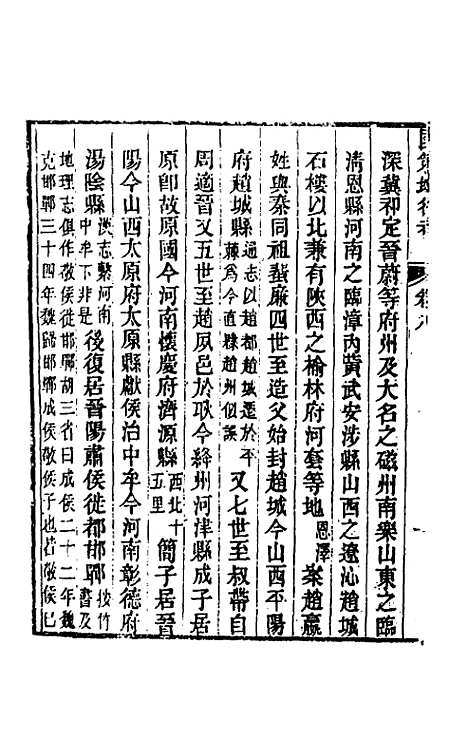 卷八
深冀祁定晉蔚等府州及大名之磁州南樂山東之臨
清恩縣河南之臨漳內黃武安涉縣山西之遼沁趙城
石樓以北兼有陝西之榆林府河套等地恩澤案趙嬴
姓與秦同祖蜚廉四世至造父始封趙城今山西平陽
府趙城縣通志以趙都趙城遷於平棘爲今直隸趙州似誤又七世至叔帶自
周適晉又五世至趙夙邑於耿今絳州河津縣成子居
原卽故原國今河南懷慶府濟源縣西北十五里簡子居晉
陽今山西太原府太原縣獻侯治中牟今河南彰德府
湯陰縣漢志繫河南中牟下非是後復居晉陽肅侯徙都邯鄲按竹書及
地理志俱作敬侯徙邯鄲胡三省曰成侯二十二年魏
克邯鄲三十四年魏歸邯鄲成侯敬侯子也若敬侯已